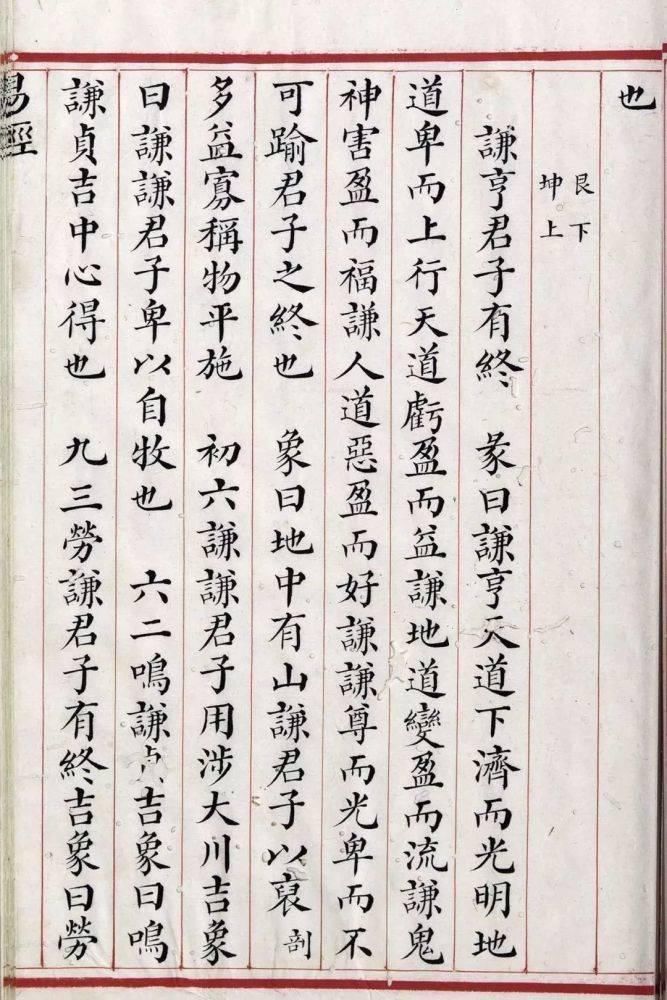 也
艮下
坤上
謙亨君子有終　彖曰謙亨天道下濟而光明地
道卑而上行天道虧盈而益謙地道變盈而流謙鬼
神害盈而福謙人道惡盈而好謙謙尊而光卑而不
可踰君子之終也　象曰地中有山謙君子以裒剖
多益寡稱物平施　初六謙謙君子用涉大川吉象
曰謙謙君子卑以自牧也　六二鳴謙貞吉象曰鳴
謙貞吉中心得也　九三勞謙君子有終吉象曰勞
易經